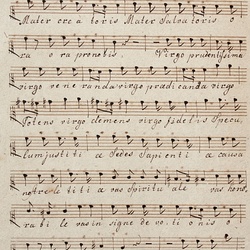 Mater crea toris Mater Salvatoris o
ra ora pronobis Virgo prudentissima
virgo veneranda virgo prædicanda virgo
Potens virgo clemens virgo fidelis Specu,
lum justiti a Sedes Sapienti a causa
nostre letiti a vas Spiritu ale vas hono,
rabile vas in signe de voti onis o